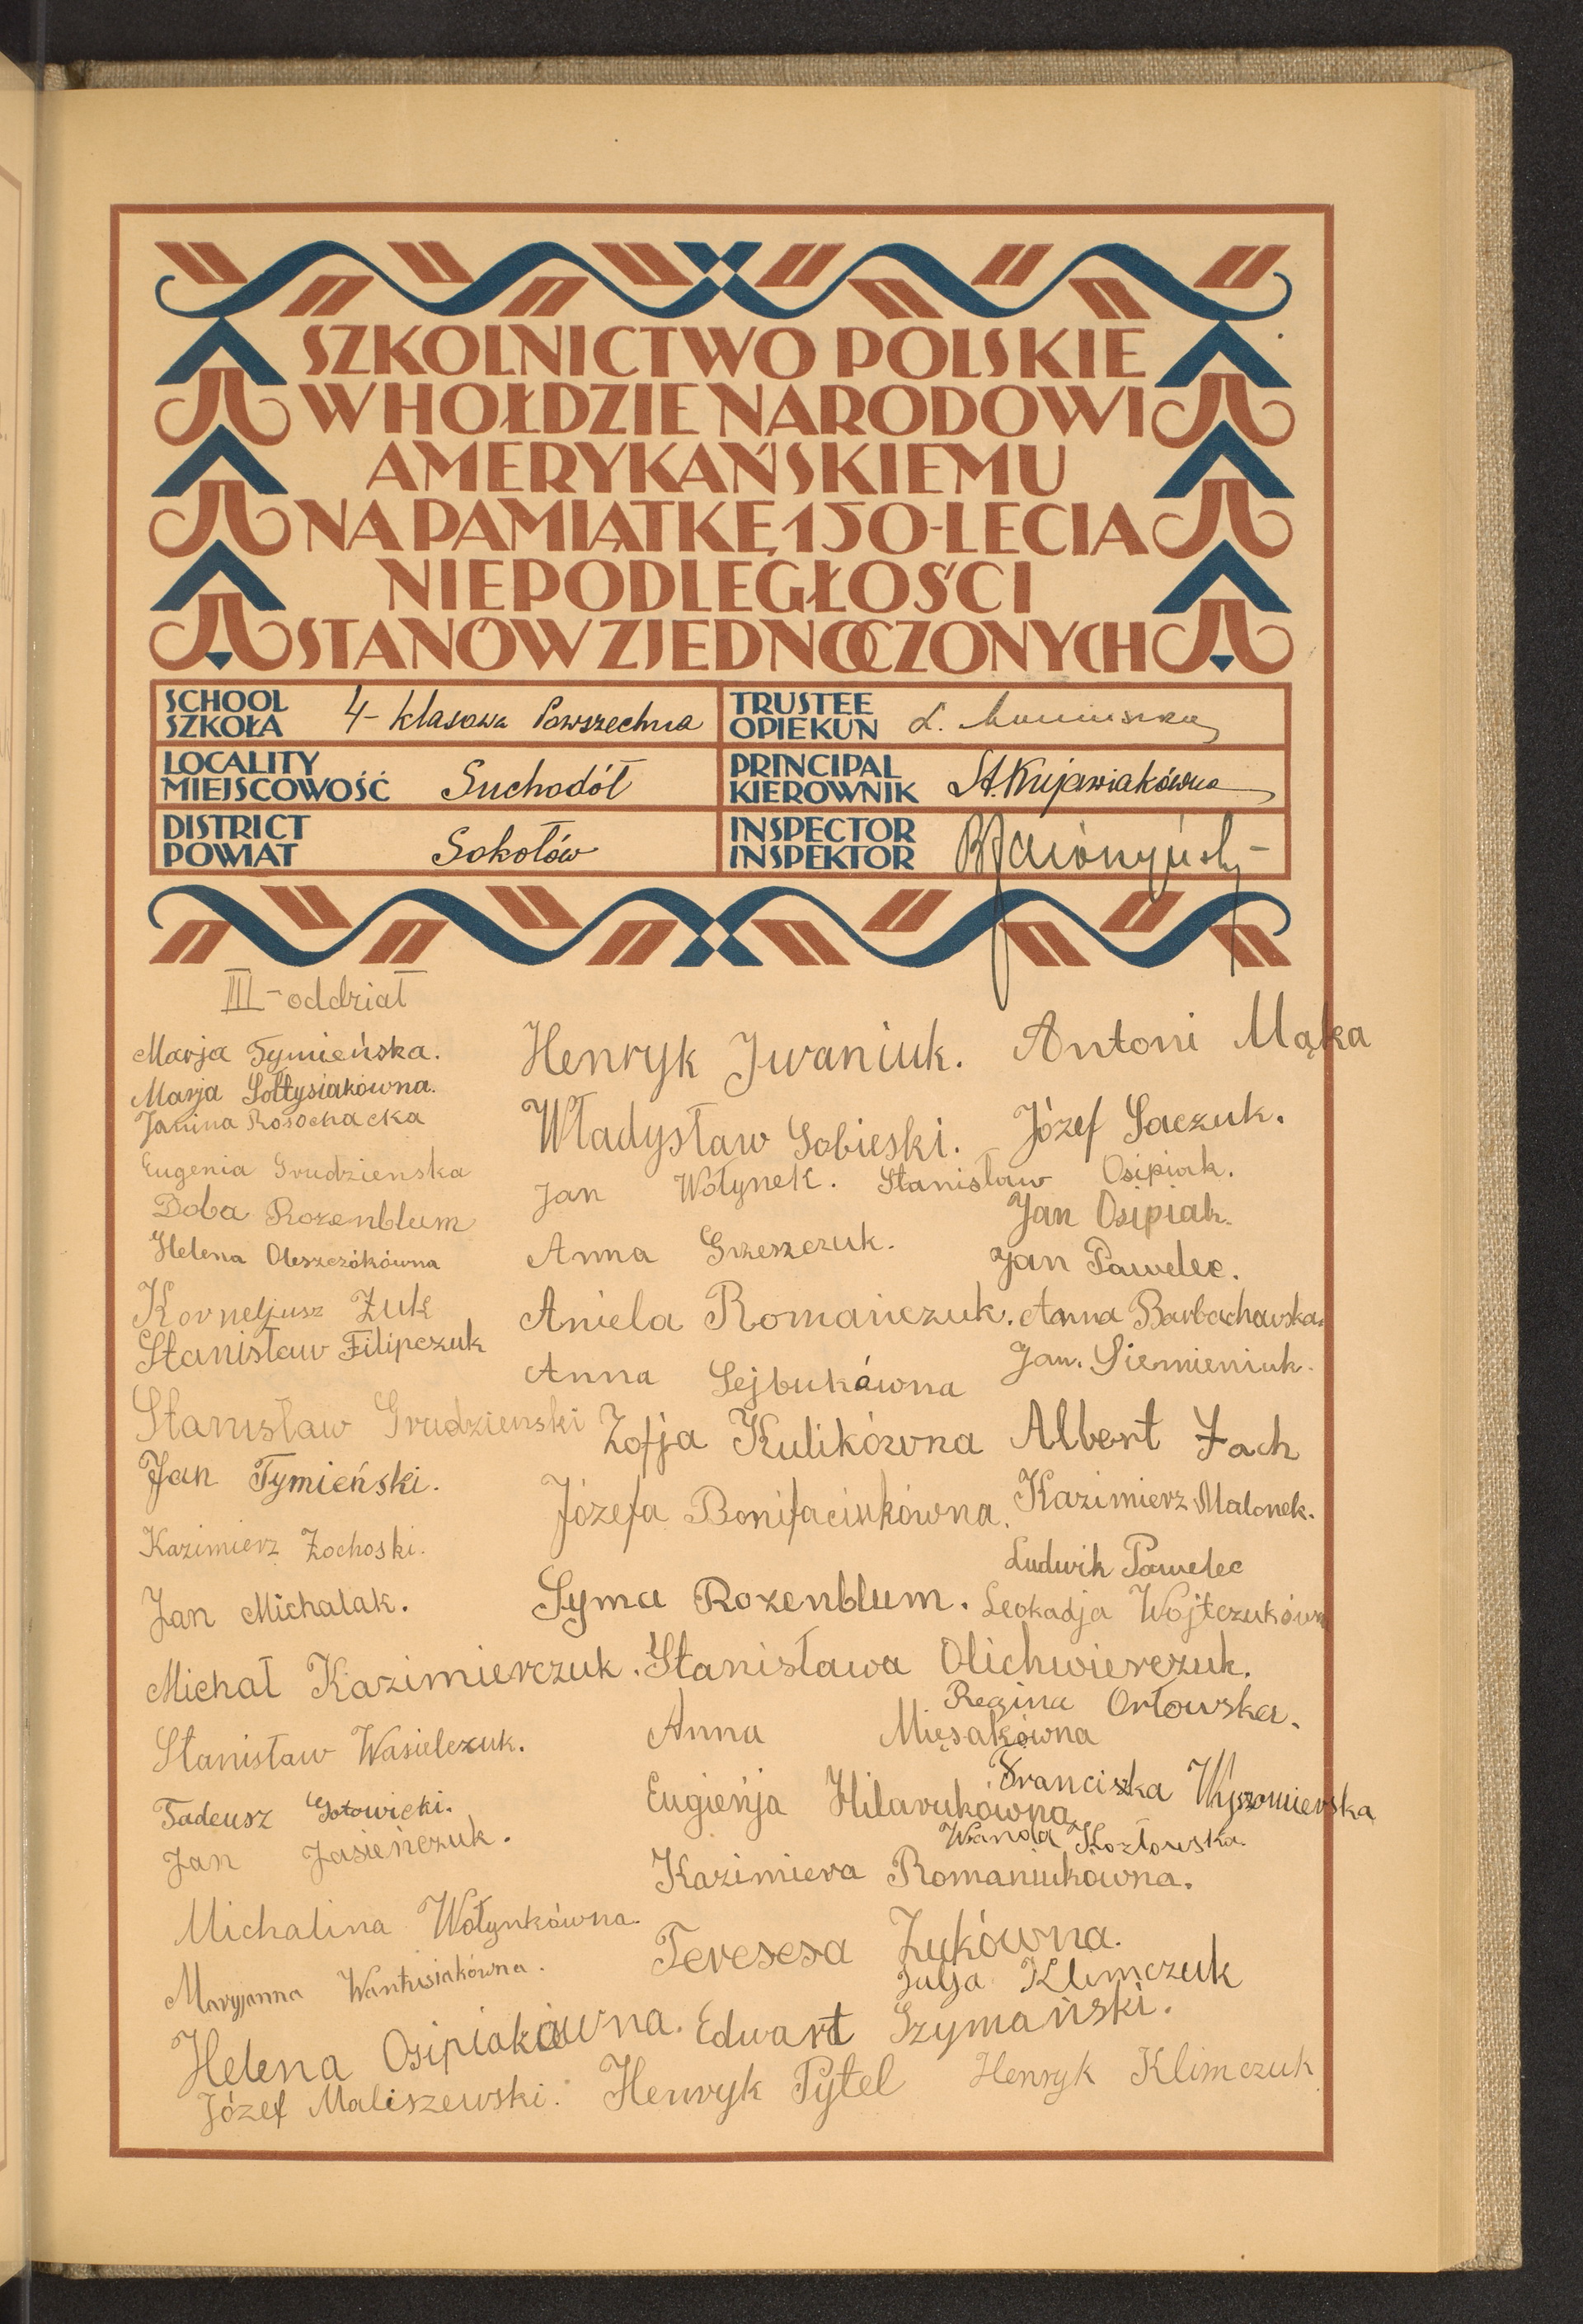 SZKOLNICTWO POLSKIE
W HOŁDZIE NARODOWI
AMERYKAŃSKIEMU
NA PAMIĄTKĘ 150-LECIA
NIEPODLEGŁOŚCI
STANÓW ZJEDNOCZONYCH
SCHOOL
SZKOŁA
4-klasowa Powszechna
TRUSTEE
OPIEKUN
LOCALITY
MIEJSCOWOŚĆ
Suchodół
PRINCIPAL
KIEROWNIK
St. Kujawiakówna
DISTRICT
POWIAT
Sokołów
INSPECTOR
INSPEKTOR
III-oddział
Marja Tymieńska.
Marja Sołtysiakówna.
Janina Rosochacka
Eugenia Grudzienska
Doba Rozenblum
Helena Oleszczókówna
Korneljusz Żuk
Stanisław Filipczuk
Stanisław Grudzienski
Jan Tymieński.
Kazimierz Żochoski.
Jan Michalak.
Michał Kazimierczuk.
Stanisław Wasielczuk.
Tadeusz Gotowicki.
Jan Jasieńczuk.
Michalina Wołynkówna.
Maryjanna Wantusiakówna.
Helena Osipiakówna.
Józef Maliszewski.
Henryk Iwaniuk.
Władysław Sobieski.
Jan Wołynek.
Anna Grzeszczuk.
Aniela Romańczuk.
Anna Sejbukówna
Zofja Kulikówna
Józefa Bonifaciukówna.
Syma Rozenblum.
Stanisława Olichwierczuk.
Anna Mięsakówna
Eugieńja Hilarukówna
Kazimiera Romaniukowna.
Teresesa Żukówna.
Edwart Szymański.
Henryk Pytel
Antoni Mąka
Józef Saczuk.
Stanisław Osipiak.
Jan Osipiak.
Jan Pawelec.
Anna Barbachowska.
Jan. Siemieniuk.
Albert Żach
Kazimierz Malonek.
Ludwik Pawelec
Leokadja Wojtczukówn
Regina Orłowska.
Franciszka Wyszomierska
Wanda Kozłowska
Julja Klimczuk
Henryk Klimczuk